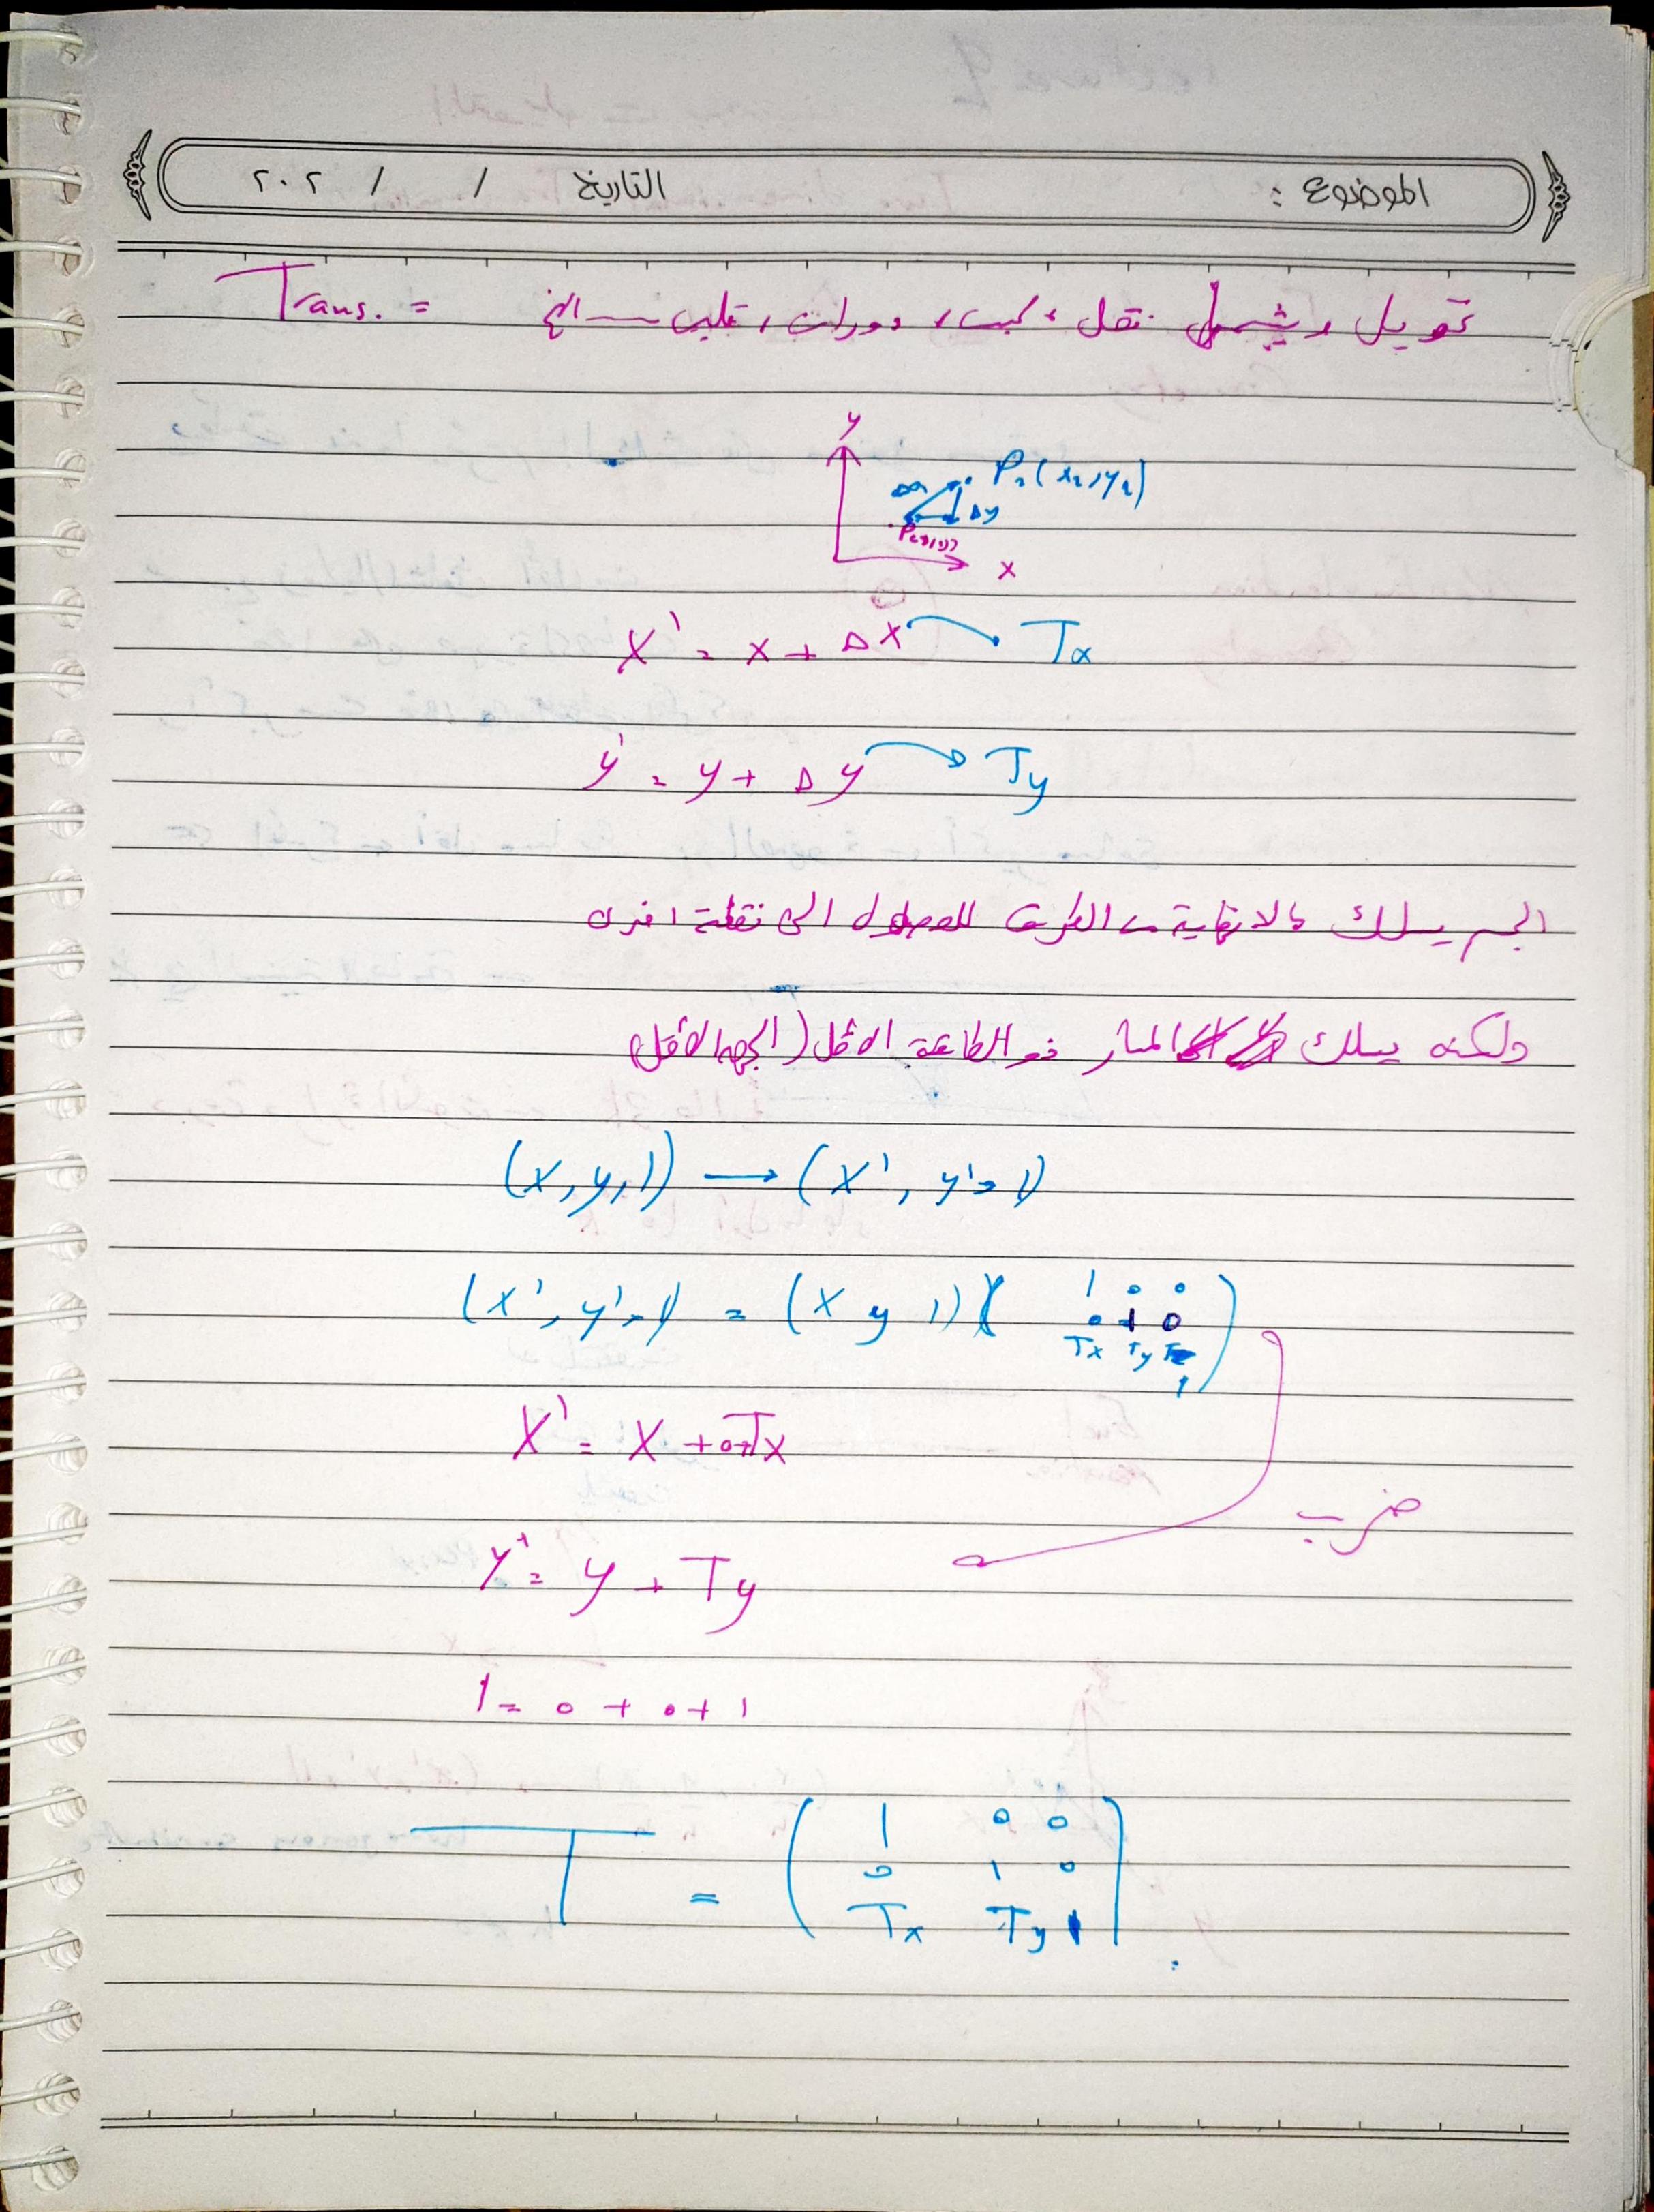 الموضوع : التاريخ / / ٢٠٢
Trans. = تحويل ويشمل نقل ، دوران ، الخ
y
P₂(x₂,y₂)
Δy
x
X' = x + Δx Tx
y' = y + Δy Ty
الجسم يسلك مالانهاية من الطرق للوصول الى نقطة اخرى
ولكنه يسلك المسار ذو الطاقة الأقل (الجهد الأقل)
(x, y, 1) → (x', y', 1)
(x', y', 1) = (x y 1) ( 1 0 0
0 1 0
Tx Ty 1 )
X' = X + 0 + Tx
ضرب
y' = y + Ty
1 = 0 + 0 + 1
T = ( 1 0 0
0 1 0
Tx Ty 1 )